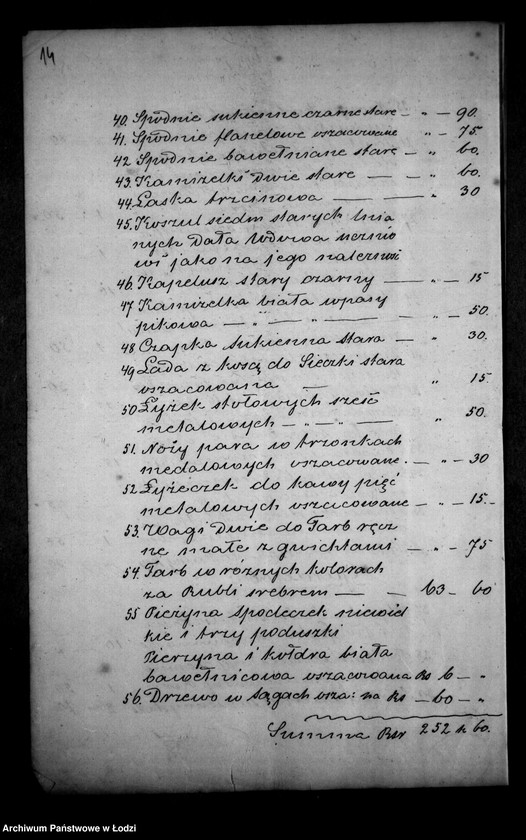 14
40. Spodnie sukienne czarne stare — „ — 90.
41. Spodnie flanelowe oszacowane „ — 75
42 Spodnie bawełniane stare — „ 60.
43. Kamizelki Dwie stare — — „ 60.
44. Laska trzcinowa — — „ 30
45. Koszul siedm starych lnia
nych Dała Wdowa ucznio
wi jako na jego należność
46. Kapelusz stary czarny — — „ — 15
47 Kamizelka biała w pasy
pikowa — „ — „ — — „ — 50.
48 Czapka sukienna stara — „ 30.
49 Lada z kosą do Sieczki stara
oszacowana — „ 15.
50 Łyżek stołowych sześć
metalowych — „ — „ — „ 50.
51. Noży para w trzonkach
medalowych oszacowane. — „ — 30
52. Łyżeczek do kawy pięć
metalowych oszacowane — „ — 15.-
53. Wagi Dwie do Farb ręcz
ne małe z gwichtami — „ — 75
54. Farb w różnych kolorach
za Rubli srebrem — — 63 — 60
55 Pierzyna spodeczek niewiel
kie i trzy poduszki
Pierzyna i kołdra biała
bawełnicowa oszacowana Rs 6 — „
56. Drzewo w Sągach osza: na Rs — 60 — „
Summa Rsr 252 k 60.
Archiwum Państwowe w Łodzi